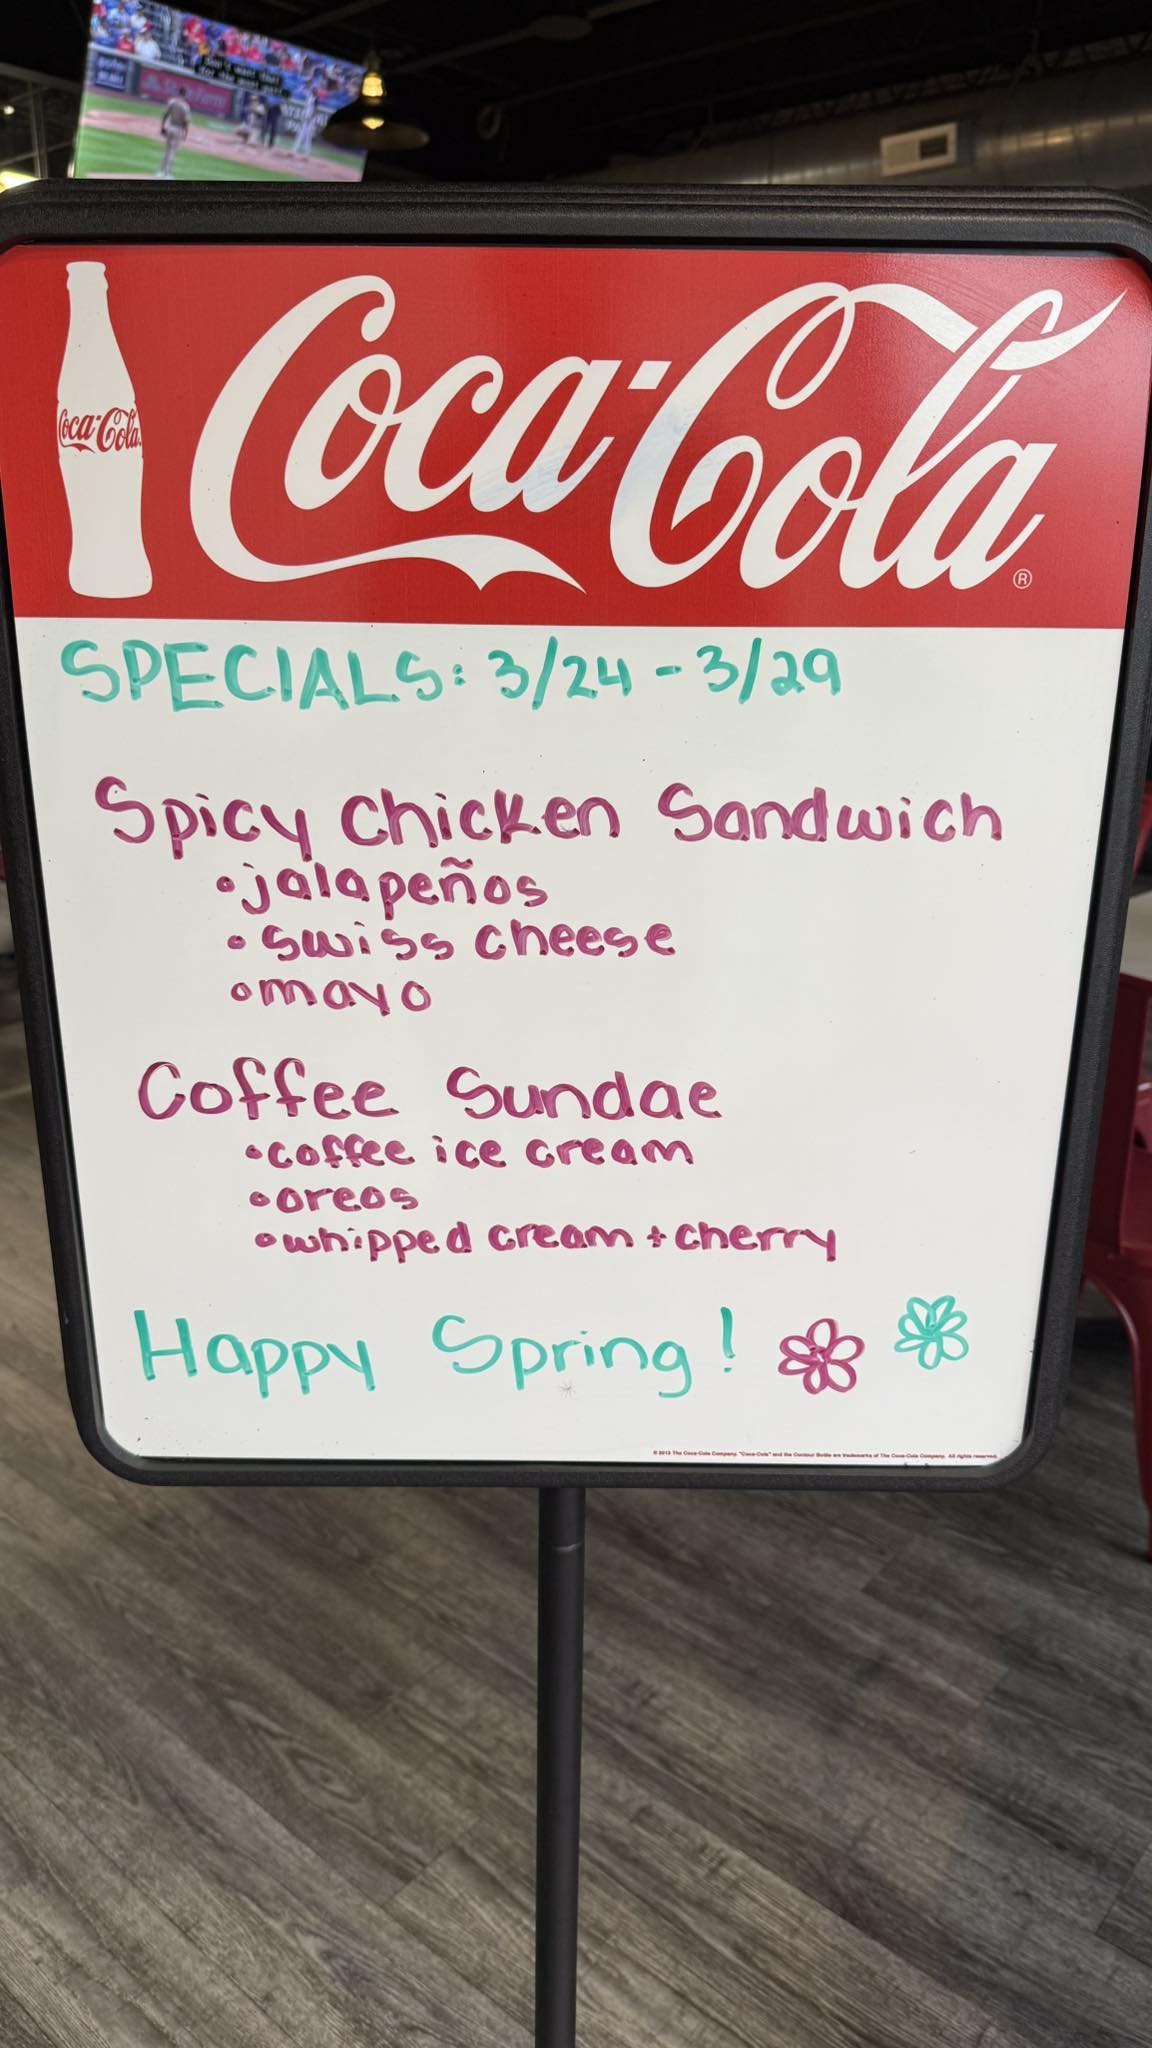 Don't want that
for the most part
State Farm
Coca-Cola
Coca-Cola®
SPECIALS: 3/24 - 3/29
Spicy Chicken Sandwich
•jalapeños
•swiss cheese
•mayo
Coffee Sundae
•coffee ice cream
•oreos
•whipped cream + cherry
Happy Spring!
© 2013 The Coca-Cola Company. "Coca-Cola" and the Contour Bottle are trademarks of The Coca-Cola Company. All rights reserved.